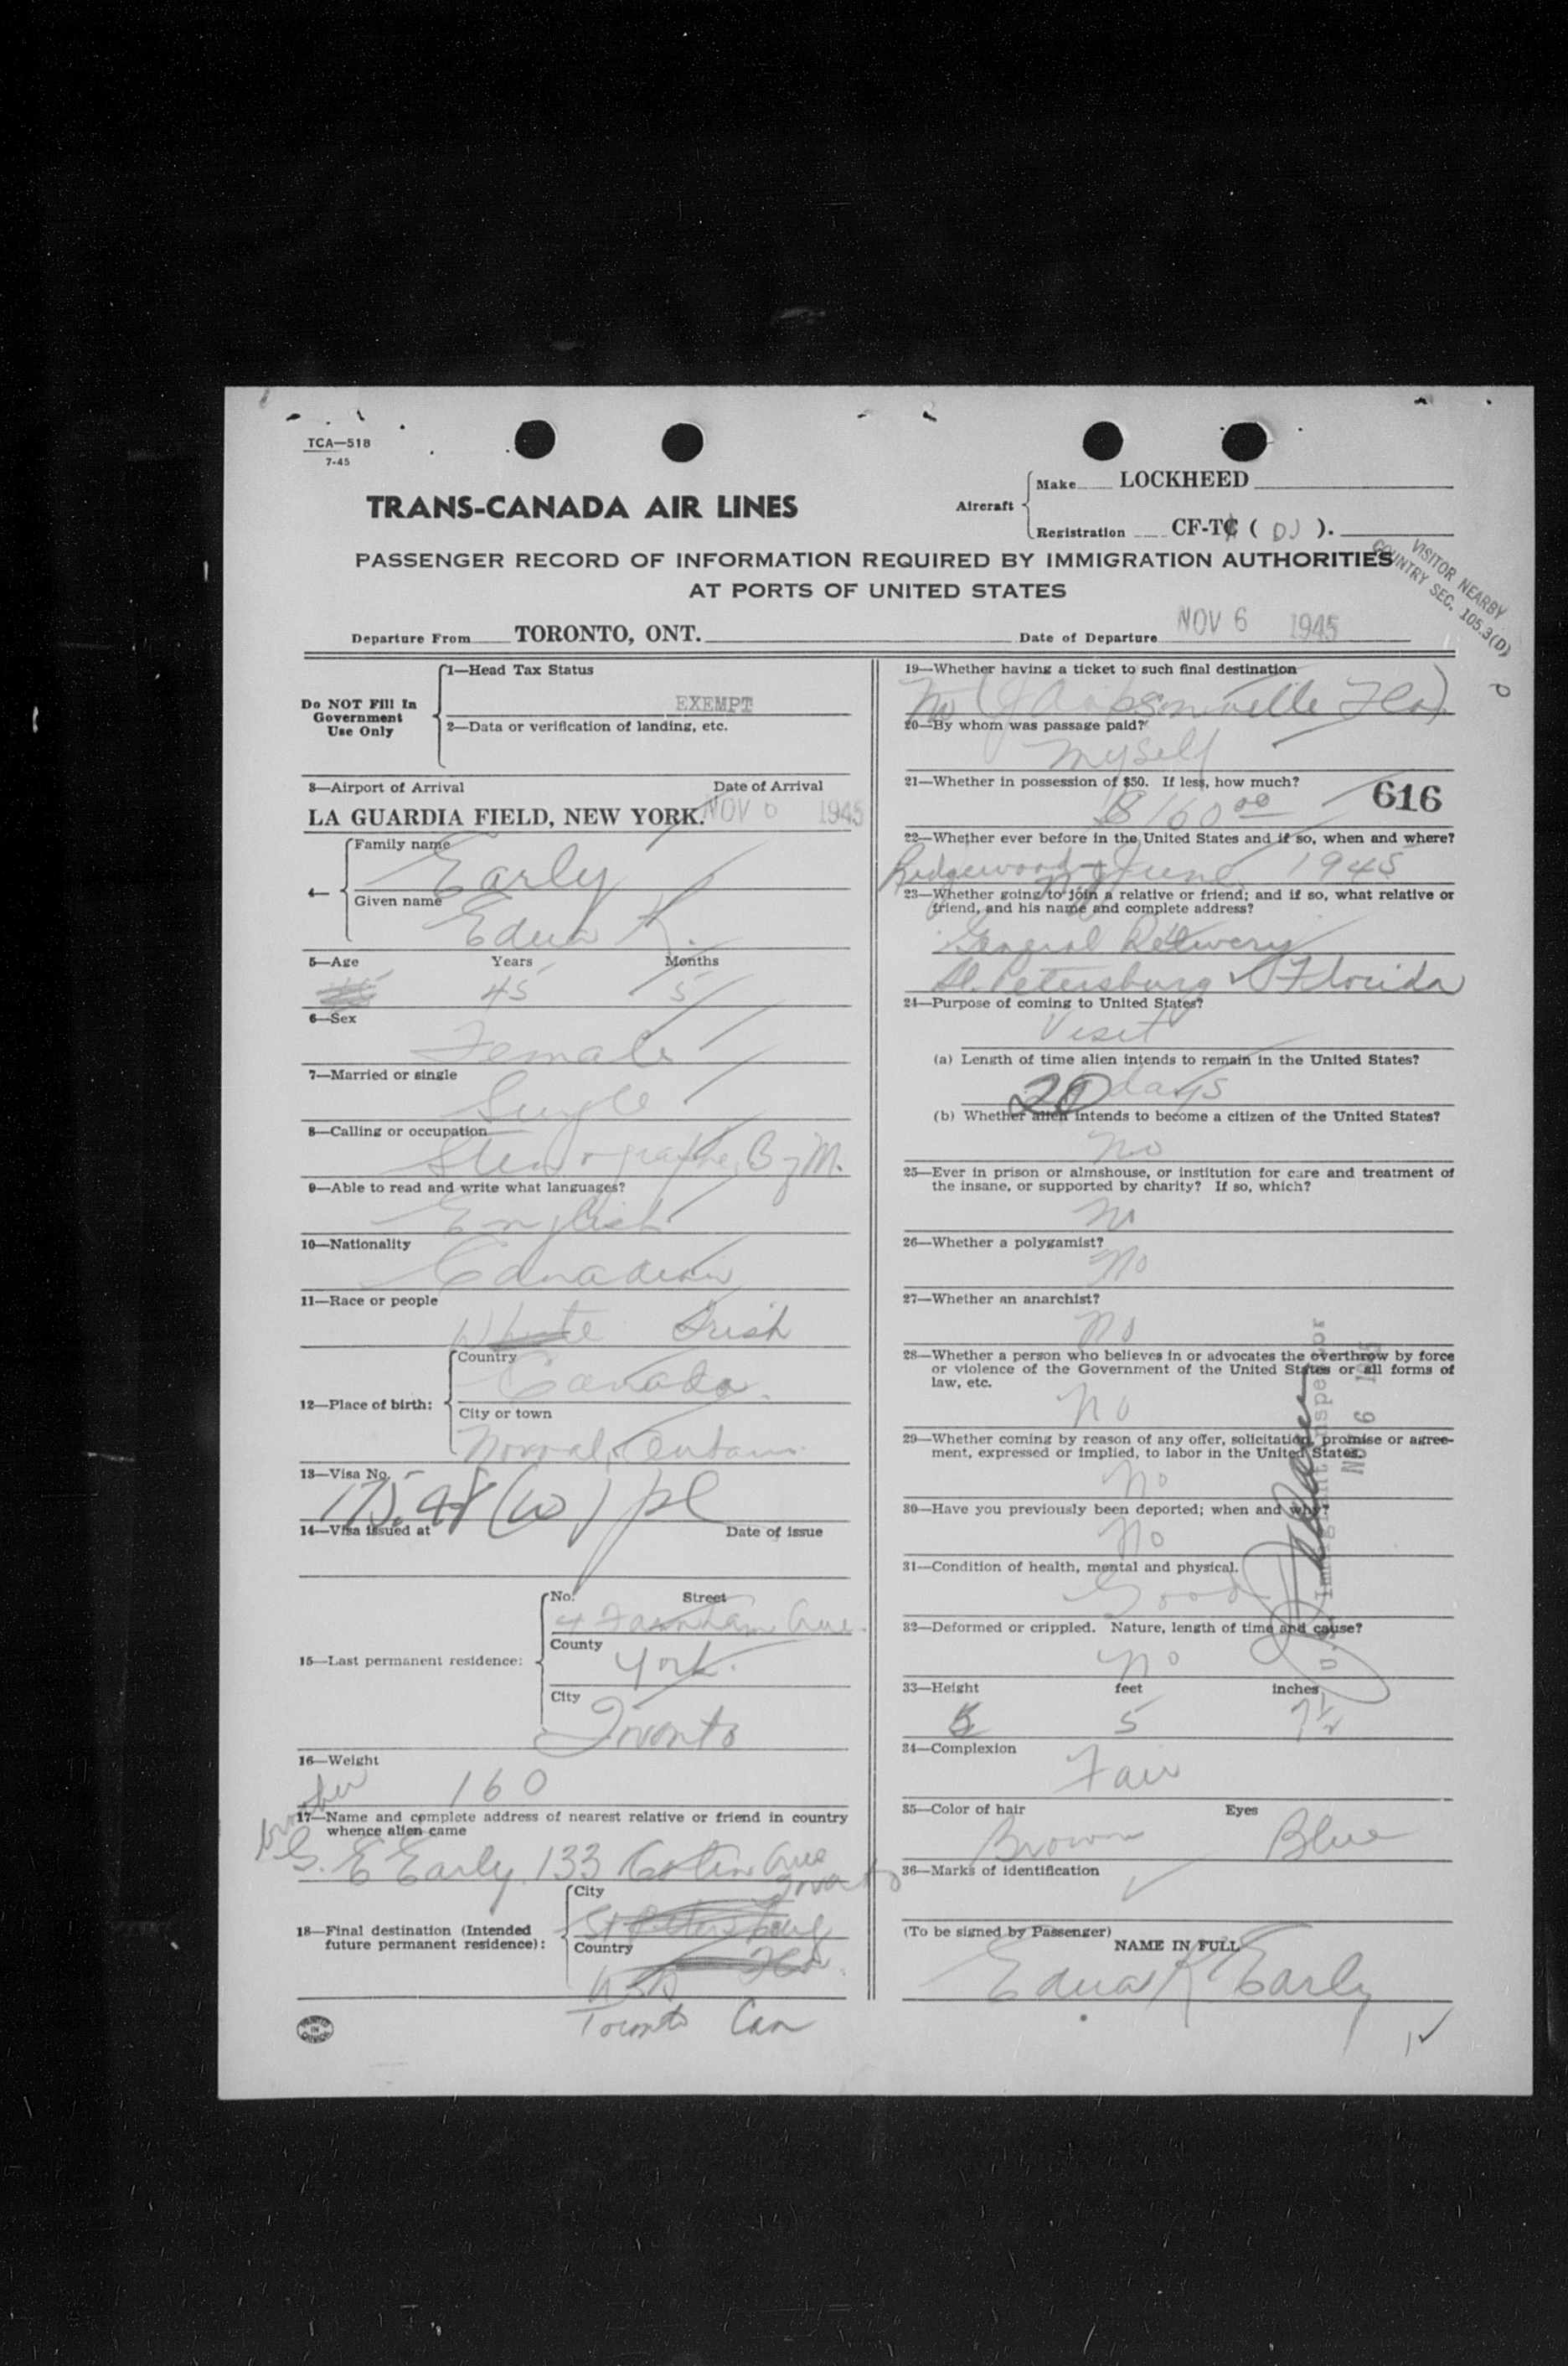 TCA—518
7-45
TRANS-CANADA AIR LINES
Aircraft
Make LOCKHEED
Registration CF-TC ( DJ ).
PASSENGER RECORD OF INFORMATION REQUIRED BY IMMIGRATION AUTHORITIES
AT PORTS OF UNITED STATES
VISITOR NEARBY
COUNTRY SEC. 105.3(D)
Departure From TORONTO, ONT. Date of Departure NOV 6 1945
Do NOT Fill In
Government
Use Only
1—Head Tax Status
EXEMPT
2—Data or verification of landing, etc.
3—Airport of Arrival Date of Arrival
LA GUARDIA FIELD, NEW YORK. NOV 6 1945
4—
Family name
Early
Given name
Edna K.
5—Age Years Months
45 5
6—Sex
Female
7—Married or single
Single
8—Calling or occupation
B of M.
9—Able to read and write what languages?
English
10—Nationality
Canadian
11—Race or people
White Irish
12—Place of birth:
Country
Canada.
City or town
Ontario
13—Visa No.
14—Visa issued at Date of issue
15—Last permanent residence:
No. Street
4 Farnham Ave.
County
York.
City
Toronto
16—Weight
160
brother
17—Name and complete address of nearest relative or friend in country
whence alien came
G. E Early 133 Ave
Toronto
18—Final destination (Intended
future permanent residence):
City
St Petersburg
Country
Fla.
USA
Toronto Can
19—Whether having a ticket to such final destination
No (Jacksonville Fla)
20—By whom was passage paid?
Myself
21—Whether in possession of $50. If less, how much?
$160.00
616
22—Whether ever before in the United States and if so, when and where?
Ridgewood NJ June 1945
23—Whether going to join a relative or friend; and if so, what relative or
friend, and his name and complete address?
General Delivery
St. Petersburg Florida
24—Purpose of coming to United States?
Visit
(a) Length of time alien intends to remain in the United States?
20 days
(b) Whether alien intends to become a citizen of the United States?
No
25—Ever in prison or almshouse, or institution for care and treatment of
the insane, or supported by charity? If so, which?
No
26—Whether a polygamist?
No
27—Whether an anarchist?
No
28—Whether a person who believes in or advocates the overthrow by force
or violence of the Government of the United States or all forms of
law, etc.
No
29—Whether coming by reason of any offer, solicitation, promise or agree-
ment, expressed or implied, to labor in the United States.
No
30—Have you previously been deported; when and why?
No
31—Condition of health, mental and physical.
Good
32—Deformed or crippled. Nature, length of time and cause?
No
33—Height feet inches
5 7½
34—Complexion
Fair
35—Color of hair Eyes
Brown Blue
36—Marks of identification
(To be signed by Passenger)
NAME IN FULL
Edna K Early
U.S. Immigrant Inspector
NOV 6 1945